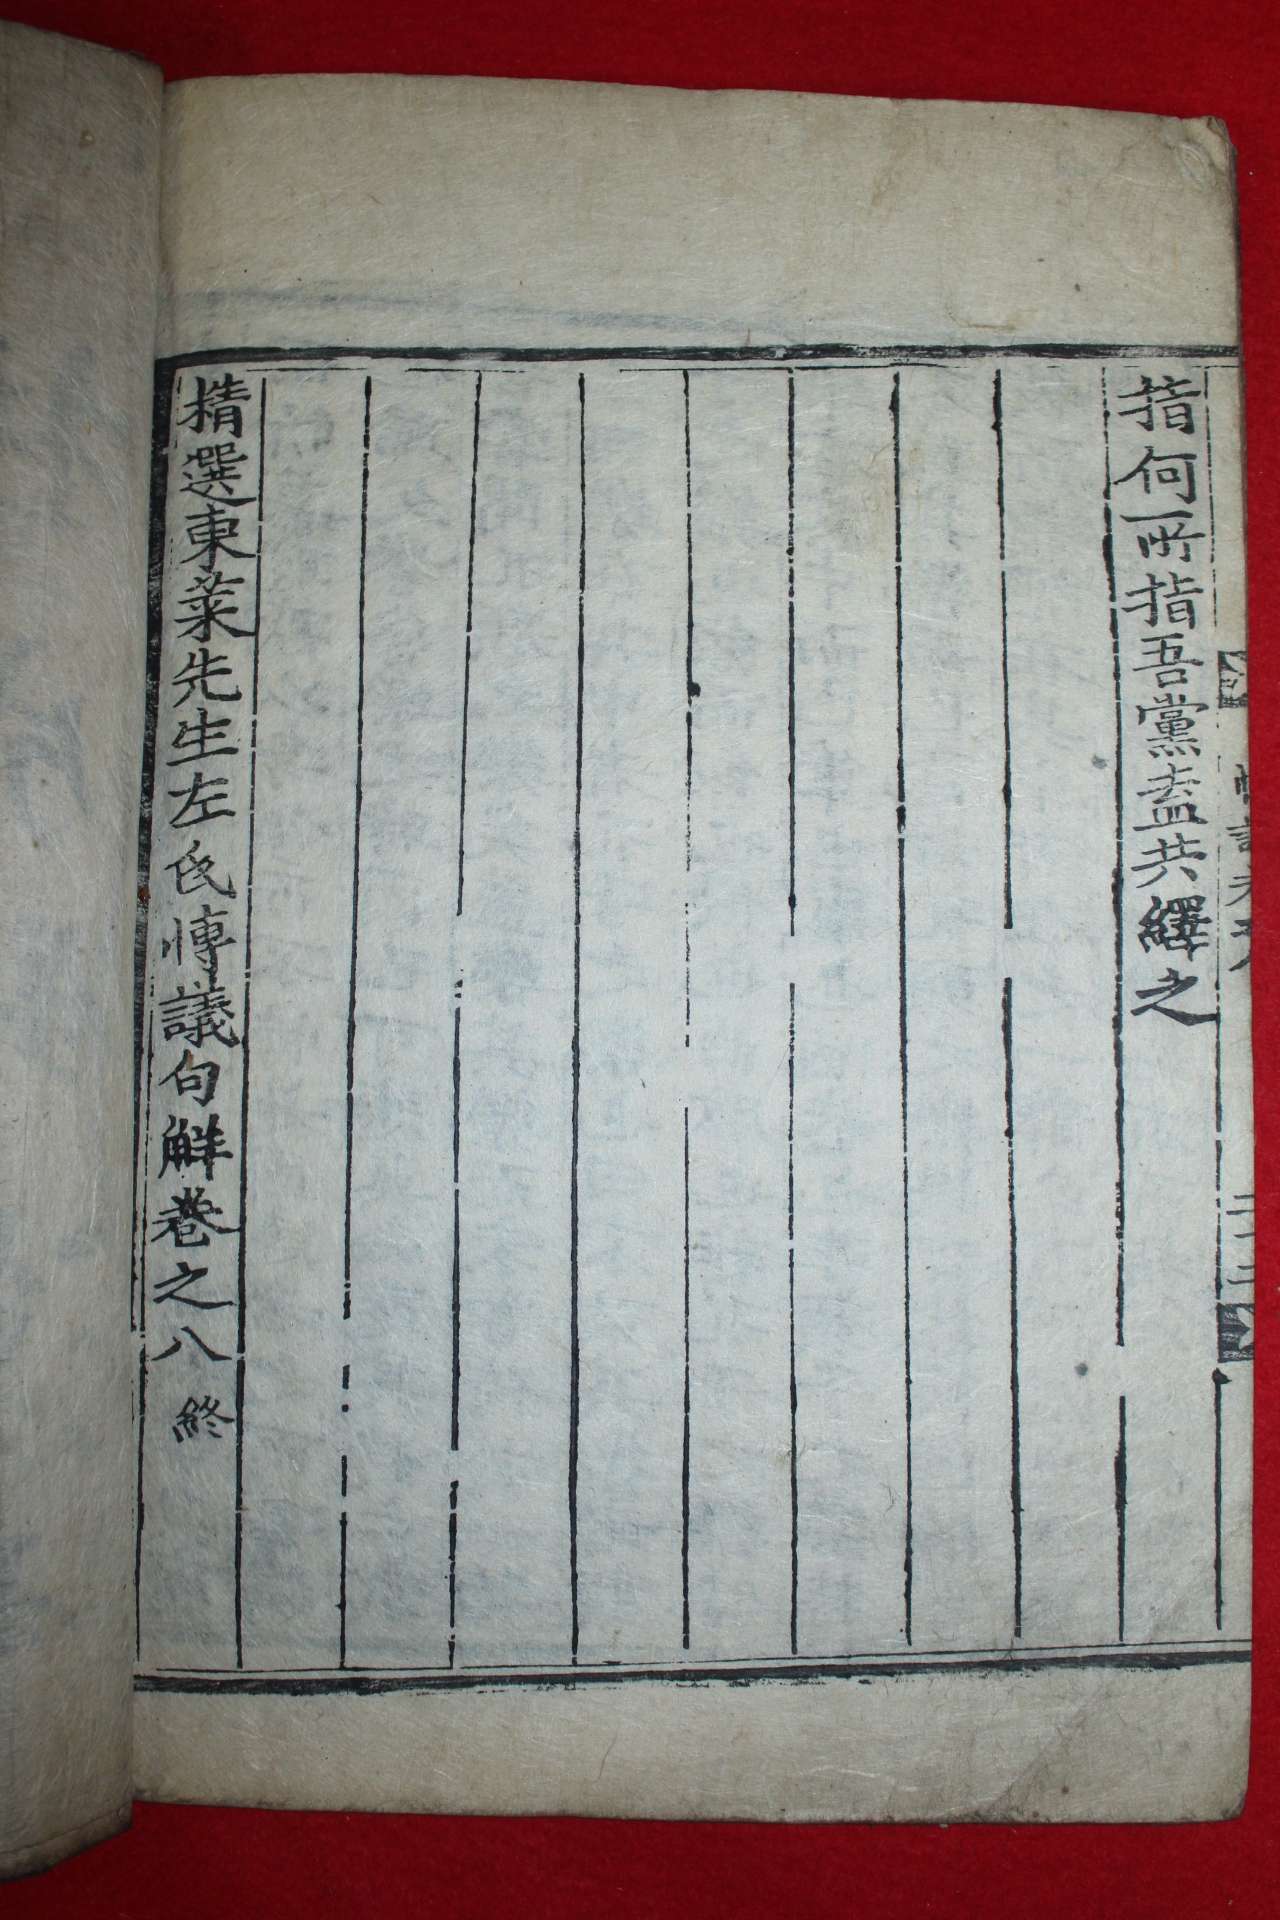 指何所指吾黨盍共繹之
精選東萊先生左氏博議句解卷之八 終
二十二